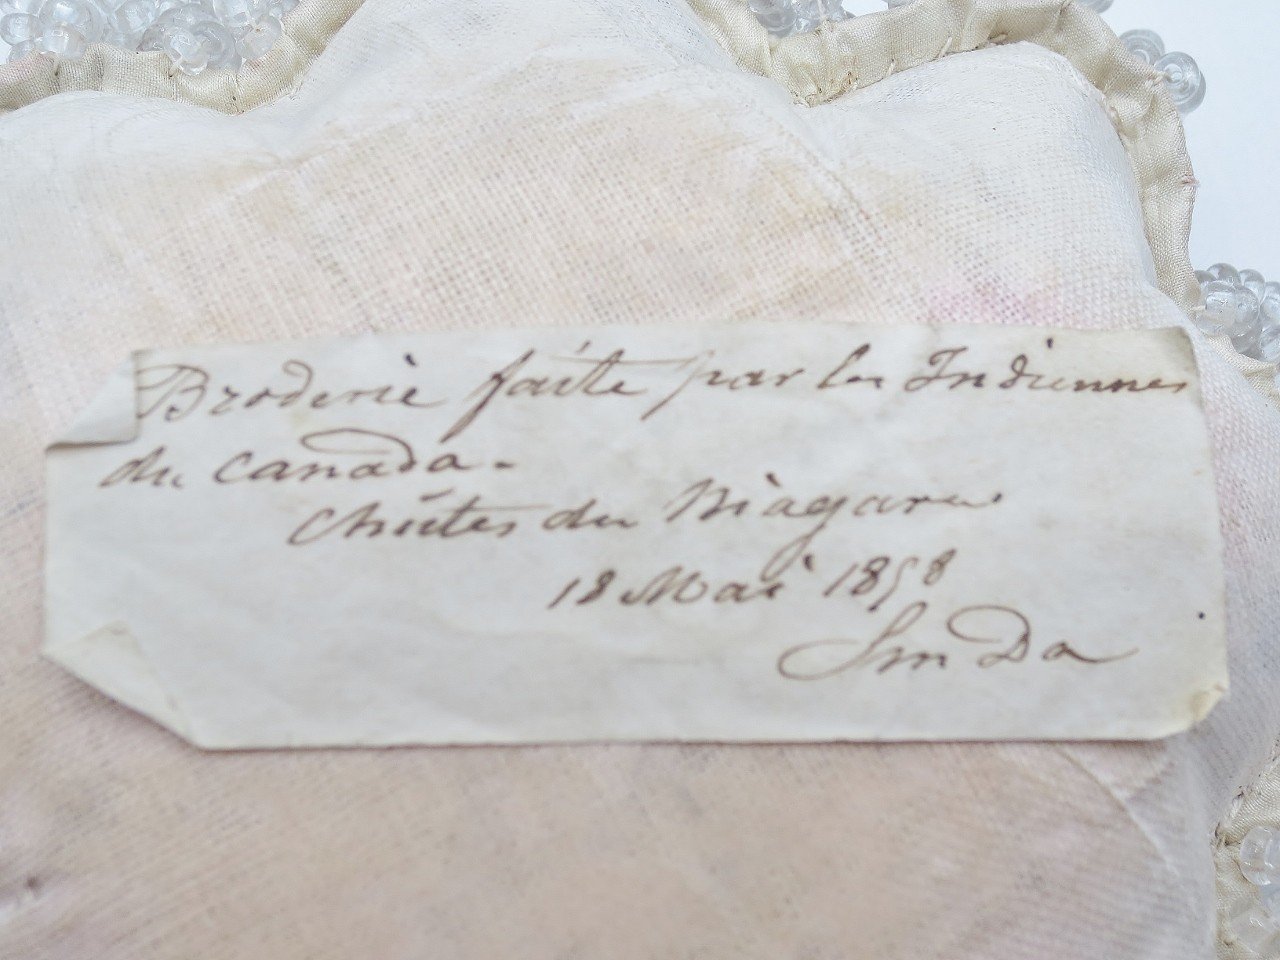 Broderie faite par les Indiennes
du Canada.
Chûtes du Niagara
18 Mai 1858